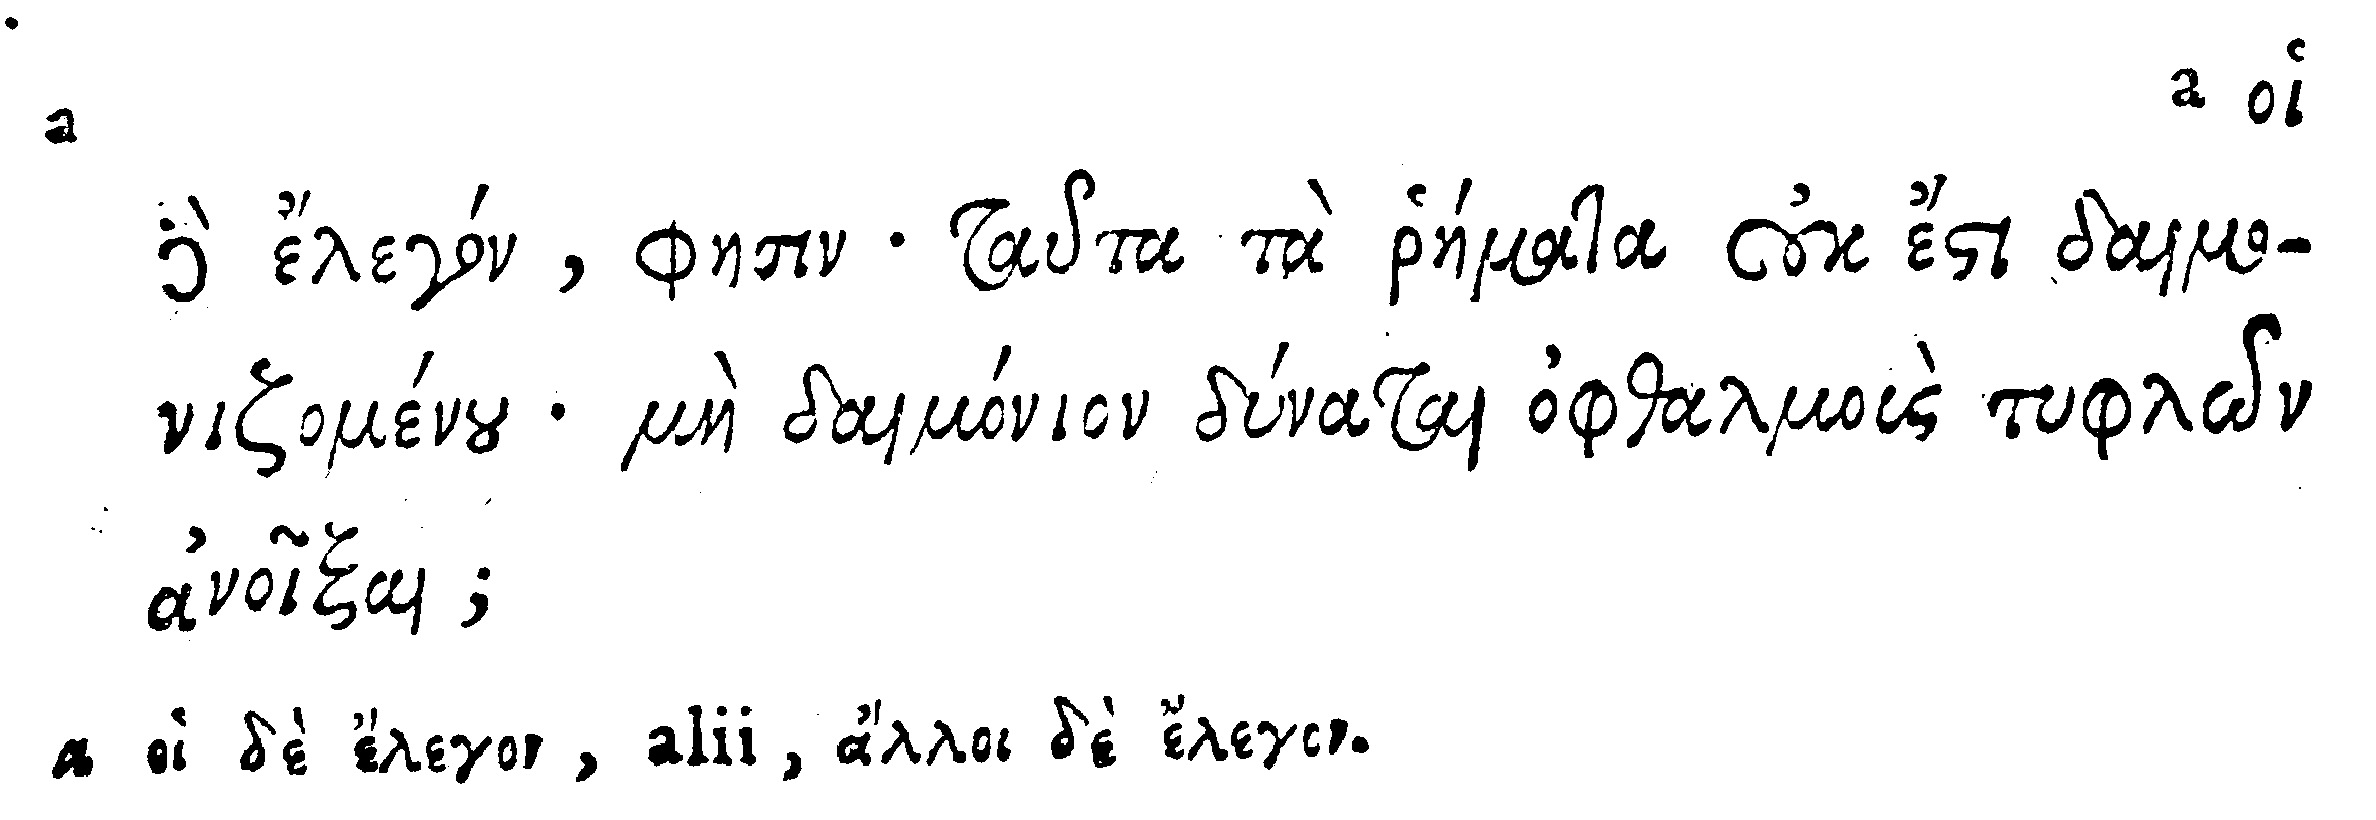 a οἱ
a
ϗ̀ ἔλεγόν, φησιν· ταῦτα τὰ ῥήματα οὐκ ἔστι δαιμο-
νιζομένου· μὴ δαιμόνιον δύναται ὀφθαλμοὺς τυφλῶν
ἀνοῖξαι;
a οἱ δὲ ἔλεγον, alii, ἄλλοι δὲ ἔλεγον.